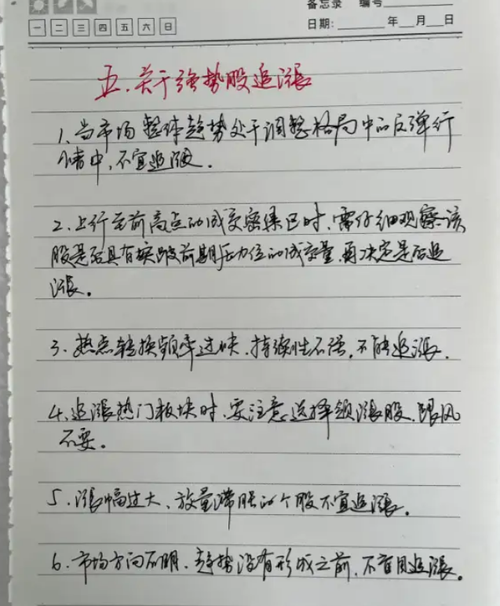 备忘录 编号
一 二 三 四 五 六 日
日期: 年 月 日
五、关于强势股追涨
1、当市场整体趋势处于调整格局中的反弹行
情中,不宜追涨。
2、上行至前高点的成交密集区时,需仔细观察该
股是否具有突破前期压力位的成交量,再决定是否追
涨。
3、热点转换频率过快,持续性不强,不能追涨。
4、追涨热门板块时,要注意选择领涨股,跟风
不要。
5、涨幅过大、放量滞胀的个股不宜追涨。
6、市场方向不明,趋势没有形成之前,不盲目追涨。